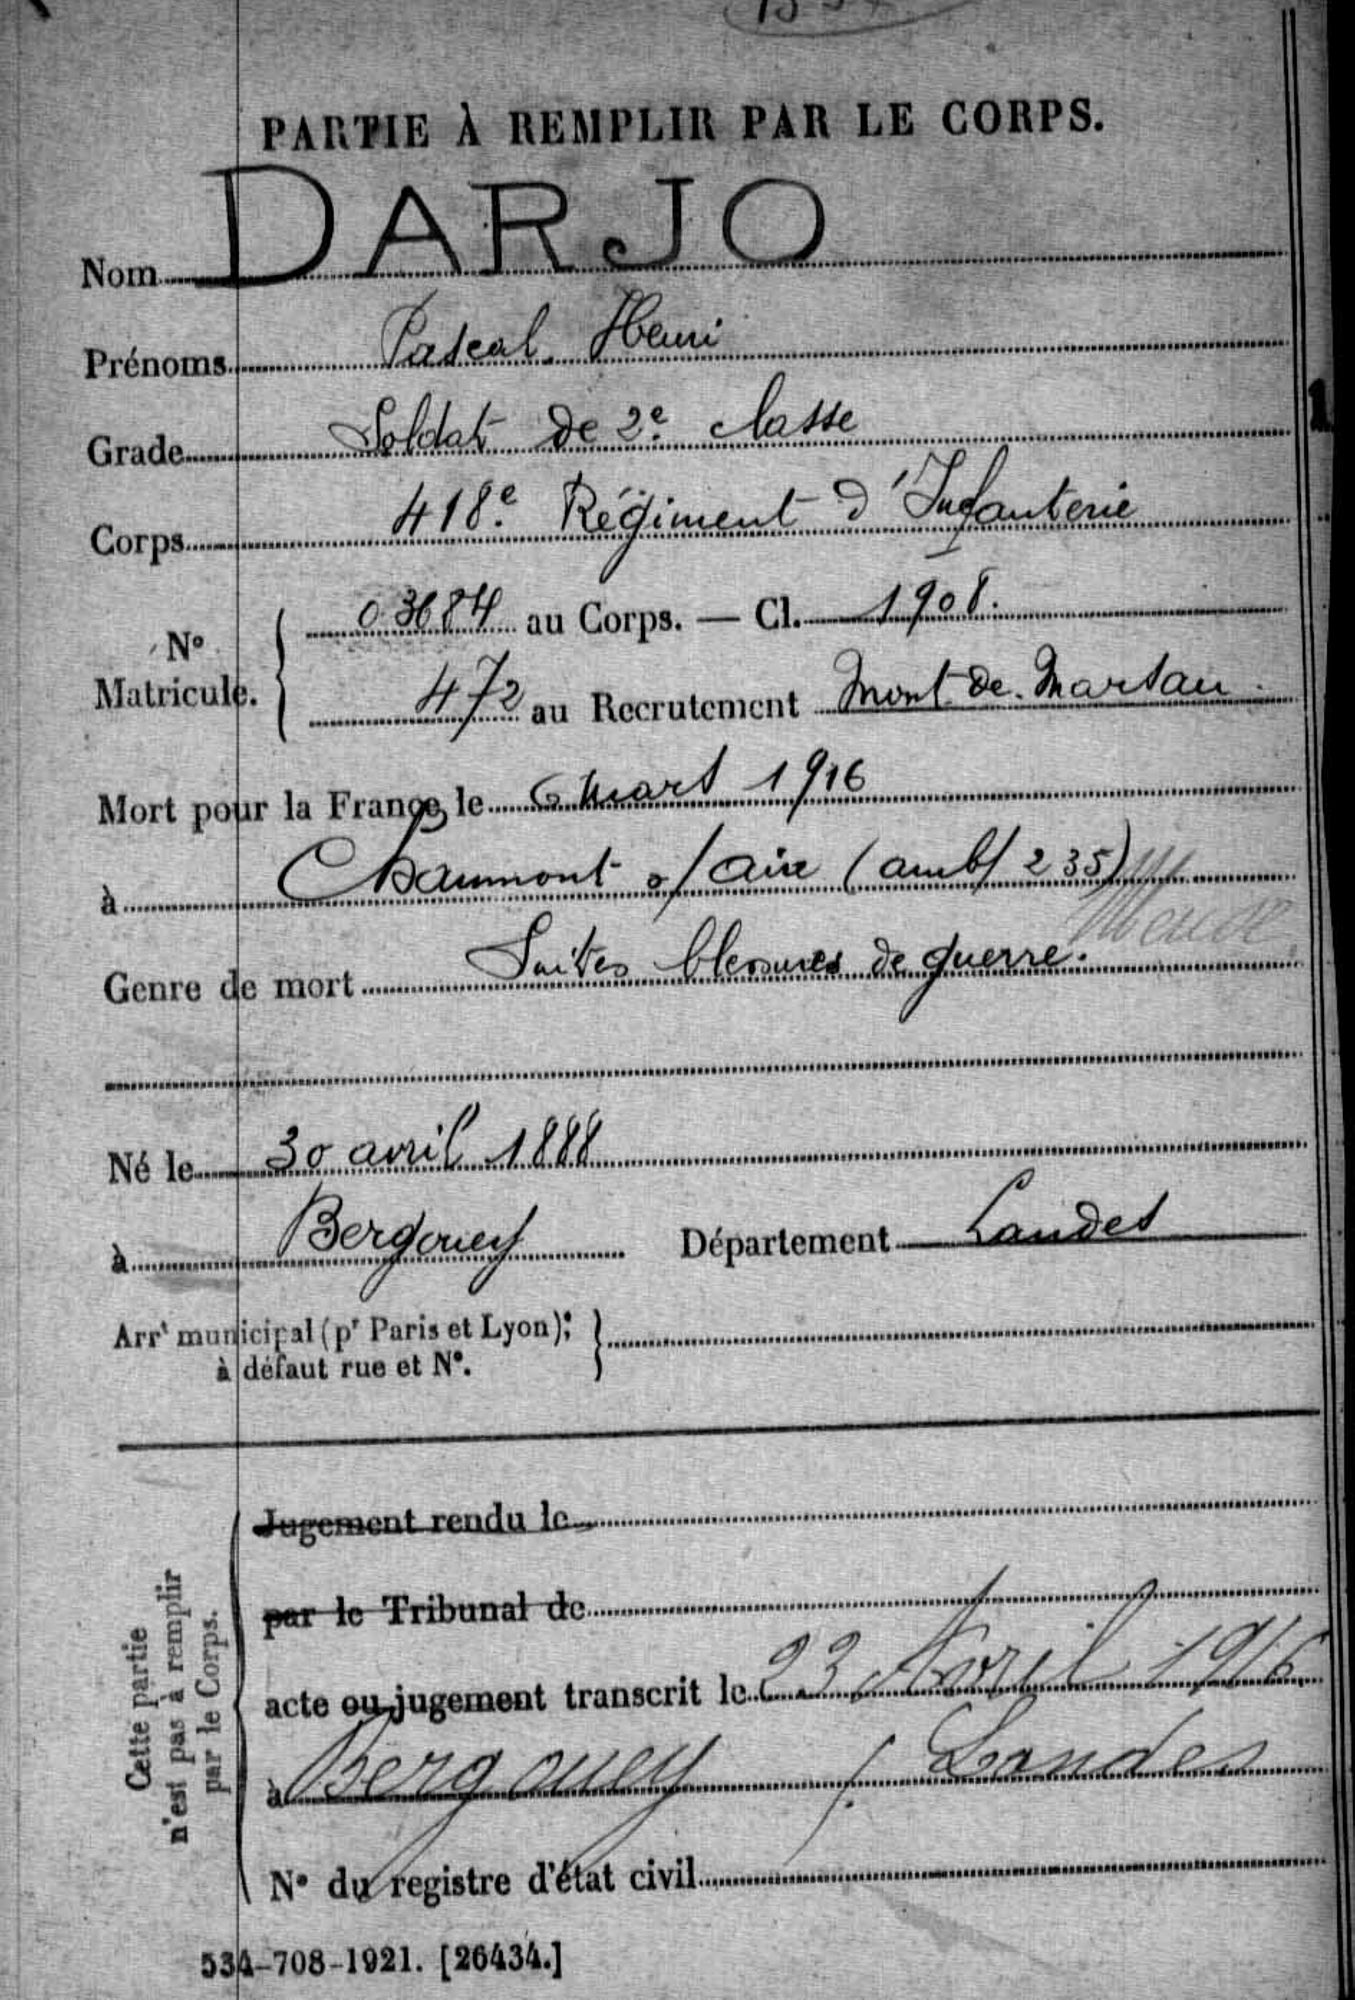 PARTIE À REMPLIR PAR LE CORPS.
Nom DARJO
Prénoms Pascal Henri
Grade Soldat de 2e classe
Corps 418e Régiment d'Infanterie
N° Matricule. { 03684 au Corps. — Cl. 1908.
472 au Recrutement Mont de Marsan
Mort pour la France le 6 mars 1916
à Chaumont s/ Aire (amb/ 235)
Meuse
Genre de mort Suites blessures de guerre.
Né le 30 avril 1888
à Bergouey Département Landes
Arrt municipal (pr Paris et Lyon); }
à défaut rue et N°.
Cette partie
n'est pas à remplir
par le Corps.
Jugement rendu le
par le Tribunal de
acte ou jugement transcrit le 23 Avril 1916
à Bergouey /. Landes
N° du registre d'état civil
534-708-1921. [26434.]